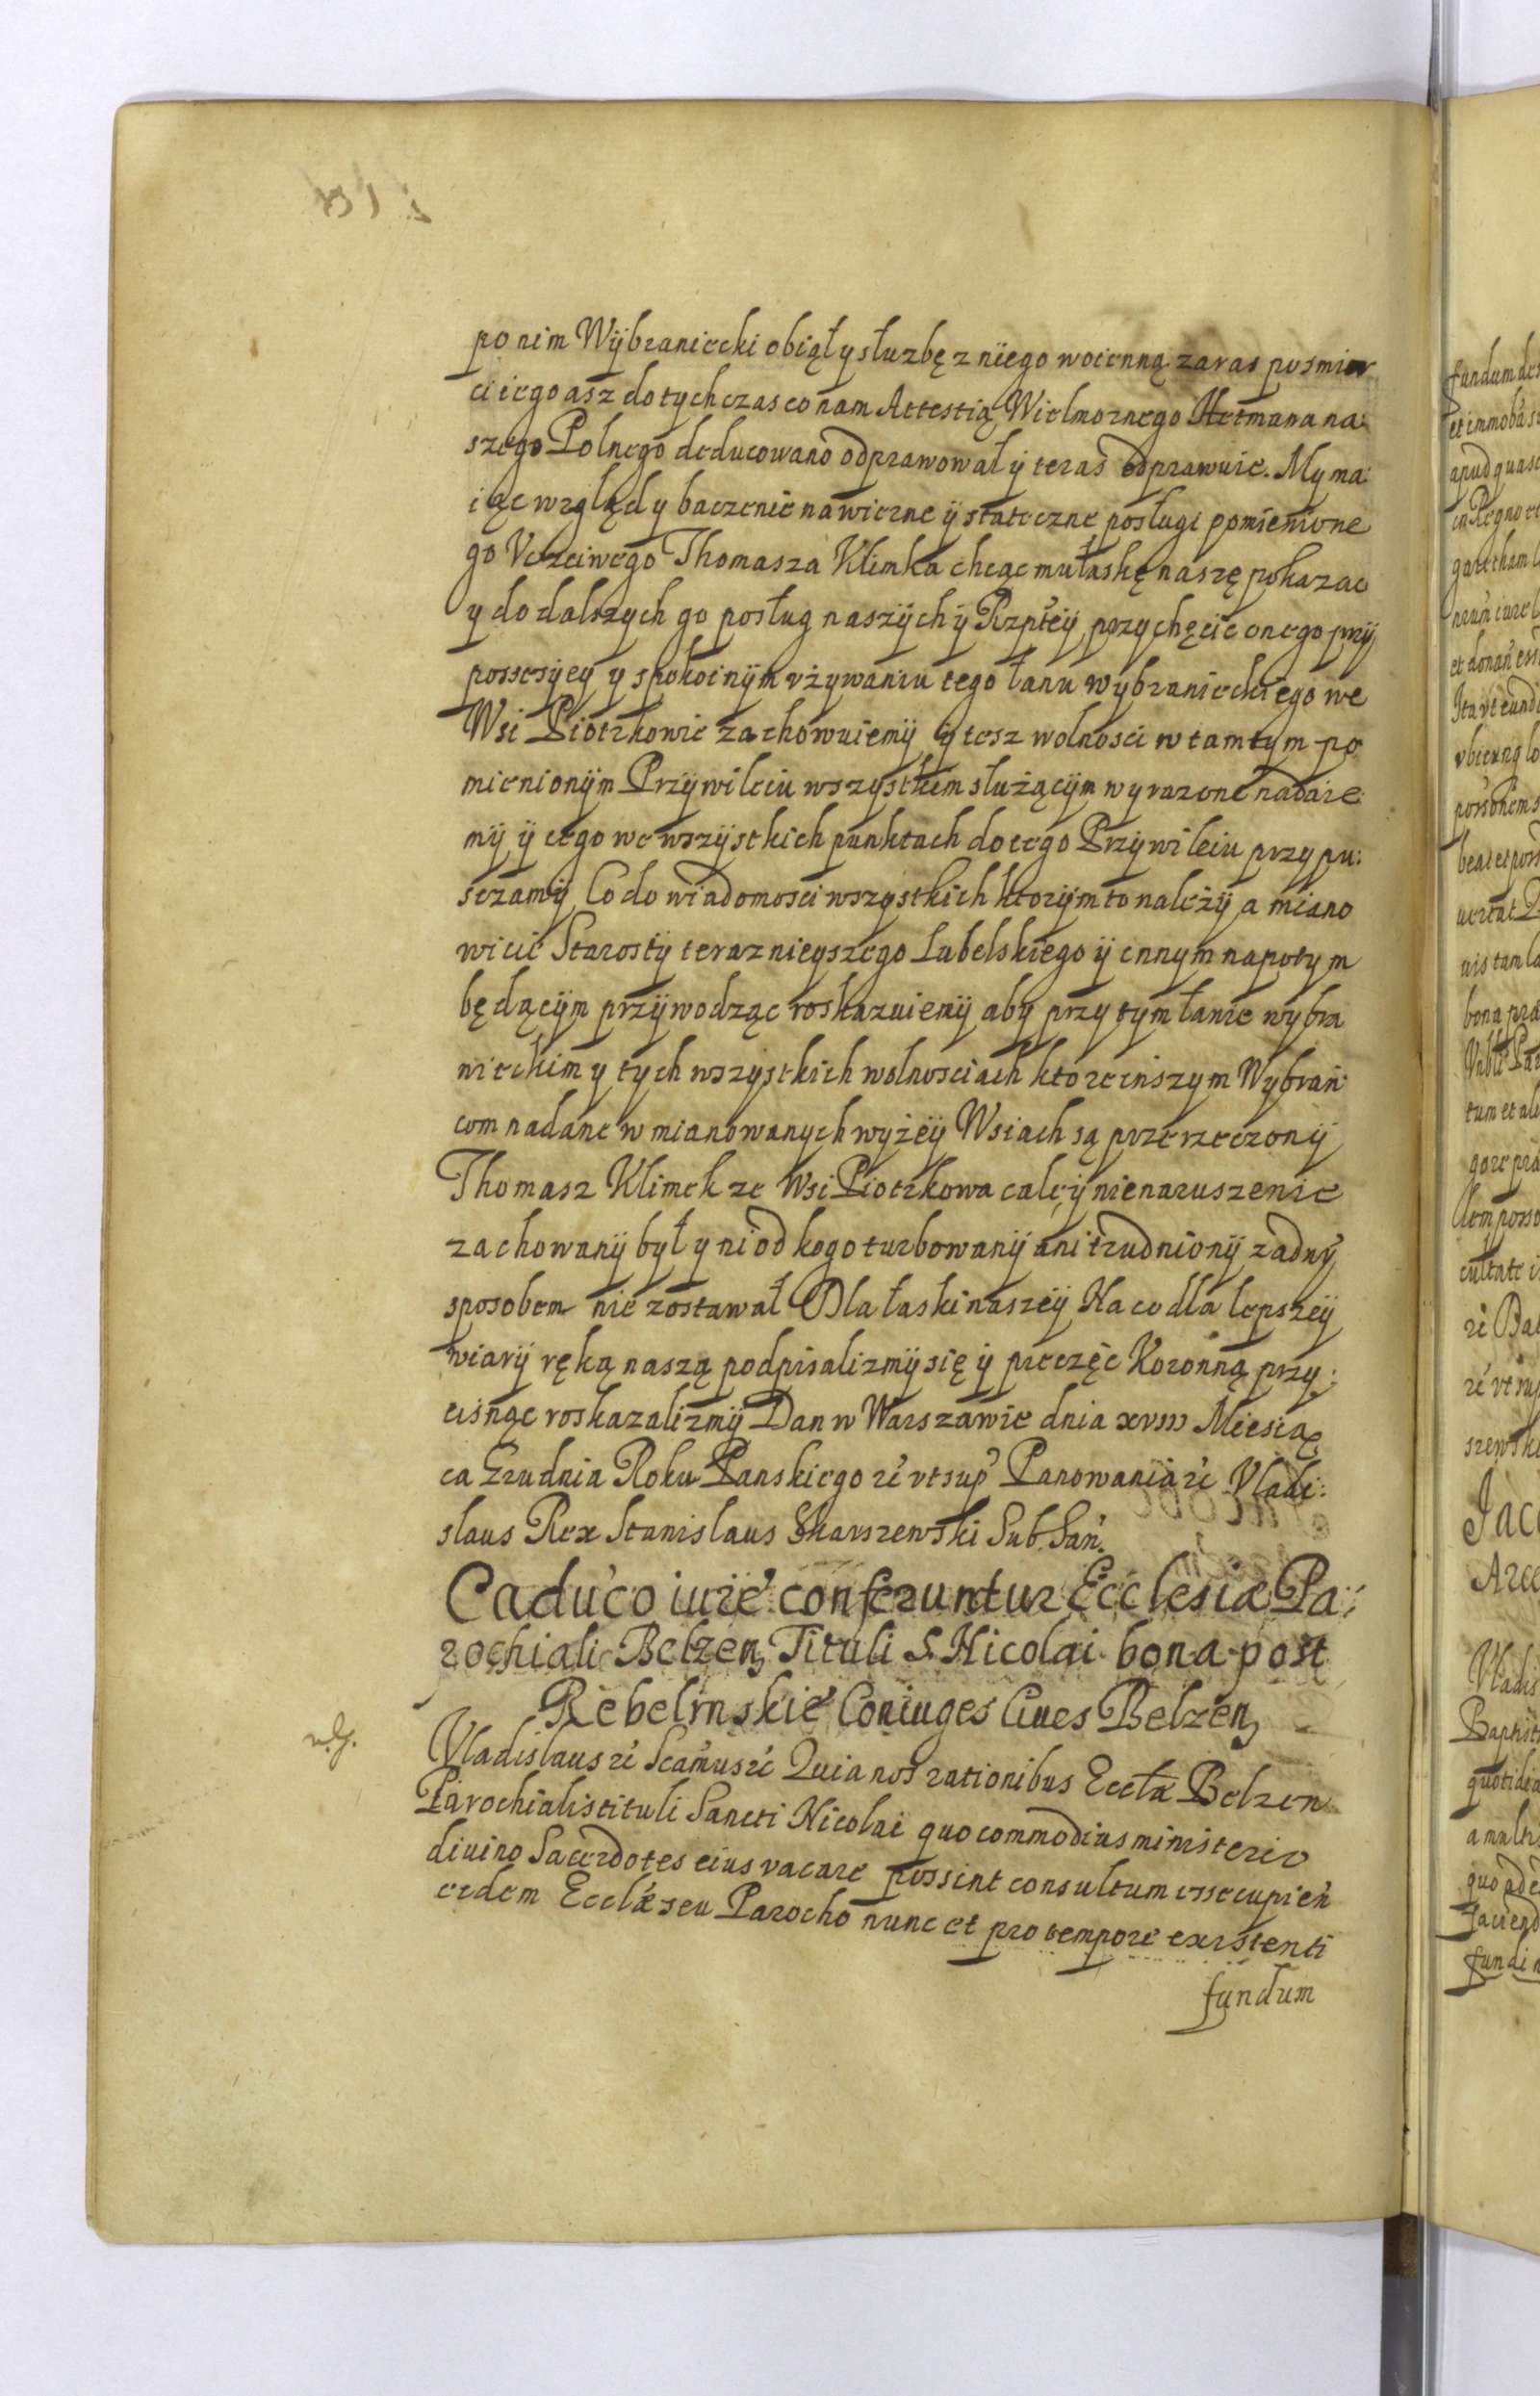 po nim Wÿbraniecki obiął y służbę z niego woienną zaras po śmier
ci iego asz do tych czas co nam Attestią Wielmoznego Hetmana na:
szego Polnego deducowano odprawował ÿ teras odprawuie. My ma:
iąc wzgląd y baczenie na wierne ÿ stateczne posługi pomienione
go Vczciwego Thomasza Klimka chcąc mu łaskę naszę pokazac
y do dalszych go posług naszÿch ÿ Rzpteÿ przychęcic onego przÿ
possesÿey y spokoinÿm vżywaniu tego łanu wybranieckiego we
Wsi Piotrkowie zachowuiemÿ ÿ tesz wolnosci w tamtym po
mienionÿm Przÿwileiu wszystkim służącÿm wyrazone nadaie:
mÿ ÿ iego we wszÿstkich punktach do tego Przÿwileiu przypu:
sczamÿ Co do wiadomosci wszystkich ktorÿm to należÿ a miano
wicie Starostÿ teraznieyszego Lubelskiego ÿ innym napotym
będącÿm przÿwodząc roskazuiemÿ aby przy tym łanie wybra
nieckim y tych wszystkich wolnosciach ktore inszym Wybrań:
com nadane w mianowanych wyżeÿ Wsiach są przerzeczonÿ
Thomasz Klimek ze Wsi Piotrkowa caleÿ nienaruszenie
zachowanÿ był y ni od kogo turbowanÿ ani trudnionÿ zadnÿ
sposobem nie zostawał Dla łaski naszeÿ Na co dla lepszeÿ
wiarÿ ręką naszą podpisalizmÿ się ÿ pieczęc Koronną przy:
cisnąc roskazalizmÿ Dan w Warszawie dnia xviii Miesią
ca Grudnia Roku Panskiego rć vt sup Panowania rć Vladi:
slaus Rex Stanislaus Skarszewski Sub. San.
Caduco iure conferuntur Ecclesiæ Pa:
rochiali Belzen Tituli S. Nicolai bona post
Rebelinskie Coniuges Ciues Belzen
Vladislaus rć Scamus rć Quia nos rationibus Ecclæ Belzen
Parochialis tituli Sancti Nicolai quo commodius ministerio
diuino Sacerdotes eius vacare possint consultum esse cupien
eidem Ecclæ seu Parocho nunc et pro tempore existenti
fundum